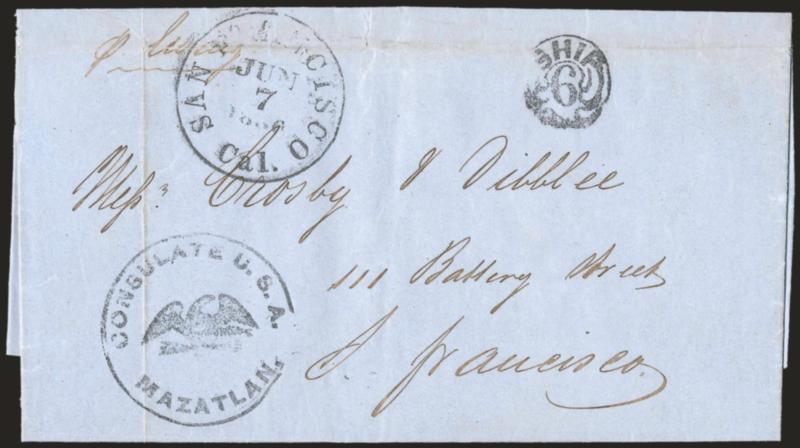 SAN FRANCISCO
JUN
7
Cal.
SHIP
6
Mess.ʳ Crosby & Dibblee
111 Battery Street
S. Francisco
CONSULATE U.S.A.
MAZATLAN.